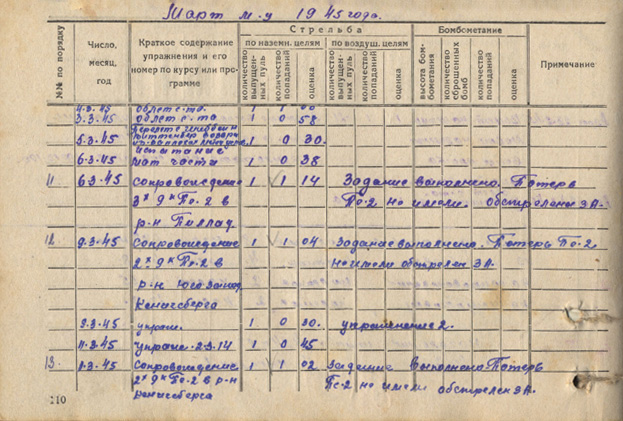 Март м-ц 1945 года.
№№ по порядку
Число, месяц, год
Краткое содержание упражнения и его номер по курсу или программе
Стрельба
по наземн. целям
по воздуш. целям
количество выпущенных пуль
количество попаданий
оценка
количество выпущенных пуль
количество попаданий
оценка
Бомбометание
высота бомбометания
количество сброшенных бомб
количество попаданий
оценка
Примечание
4.3.45 облет с-та. 1 1 00
3.3.45 облет с-та 1 0 58
5.3.45 1 0 30.
испытание
6.3.45 мат части 1 0 38
11 6.3.45 сопровождение 1 1 14 Задание выполнено. Потерь
3х 9к Пе-2 в Пе-2 не имели. обстрелян ЗА.
р-н Пиллау.
12. 9.3.45 Сопровождение 1 1 04 Задание выполнено. Потерь Пе-2
2х 9к Пе-2 в не имели обстрелян ЗА.
р-н юго запад.
Кенигсберга
9.3.45 упражн. 1 0 30. упражнение 2.
11.3.45 упражн. 2.3.14 1 0 45
13. Сопровождение 1 1 02 Задание выполнено. Потерь
2х 9к Пе-2 в р-н Пе-2 не имели обстрелян ЗА.
Кенигсберга
110